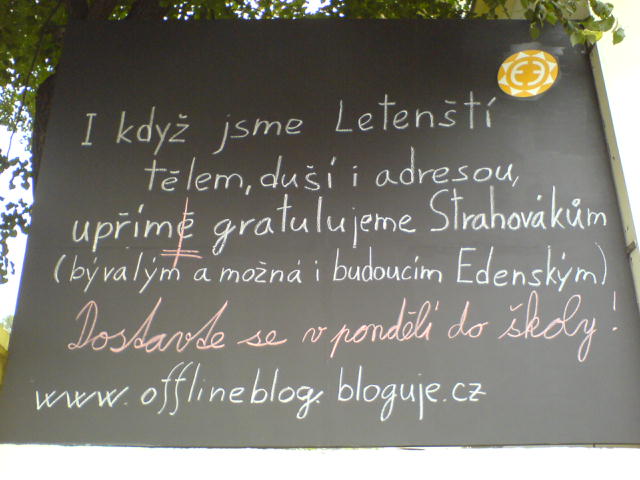 I když jsme Letenští
tělem, duší i adresou,
upřímě gratulujeme Strahovákům
(bývalým a možná i budoucím Edenským)
Dostavte se v pondělí do školy!
www.offlineblog.bloguje.cz